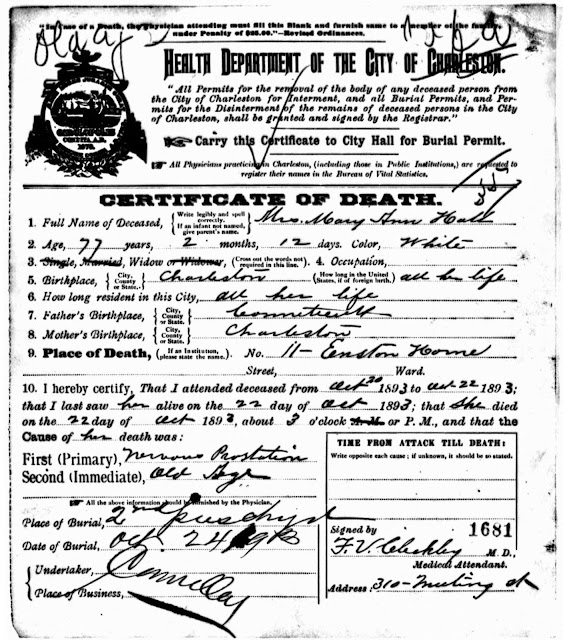 "In case of a Death, the Physician attending must fill this Blank and furnish same to a member of the family,
under Penalty of $25.00."—Revised Ordinances.
Old age
HEALTH DEPARTMENT OF THE CITY OF CHARLESTON.
"All Permits for the removal of the body of any deceased person from
the City of Charleston for Interment, and all Burial Permits, and Per-
mits for the Disinterment of the remains of deceased persons in the City
of Charleston, shall be granted and signed by the Registrar."
Carry this Certificate to City Hall for Burial Permit.
All Physicians practicing in Charleston, (including those in Public Institutions,) are requested to
register their names in the Bureau of Vital Statistics.
CERTIFICATE OF DEATH.
1. Full Name of Deceased, {Write legibly and spell correctly. If an infant not named, give parent's name.} Mrs. Mary Ann Hall
2. Age, 77 years, 2 months, 12 days. Color, White
3. Single, Married, Widow or Widower, (Cross out the words not required in this line.) 4. Occupation,
5. Birthplace, {City, County or State.} Charleston {How long in the United States, if of foreign birth.} all her life
6. How long resident in this City, all her life
7. Father's Birthplace, {City, County or State.} Connecticut
8. Mother's Birthplace, {City, County or State.} Charleston
9. Place of Death, {If an Institution, please state the name.} No. 11- Enston Home
Street, Ward.
10. I hereby certify, That I attended deceased from Oct 20 1893 to Oct 22 1893;
that I last saw her alive on the 22 day of Oct 1893; that She died
on the 22 day of Oct 1893, about 3 o'clock A. M. or P. M., and that the
Cause of her death was:
First (Primary), Nervous Prostation
Second (Immediate), Old Age
TIME FROM ATTACK TILL DEATH:
Write opposite each cause; if unknown, it should be so stated.
All the above information should be furnished by the Physician.
Place of Burial, 2nd
Date of Burial, Oct. 24
Undertaker, Connelley
Place of Business,
1681
Signed by
F. V. Cleckley M. D.,
Medical Attendant.
Address: 310- Meeting st